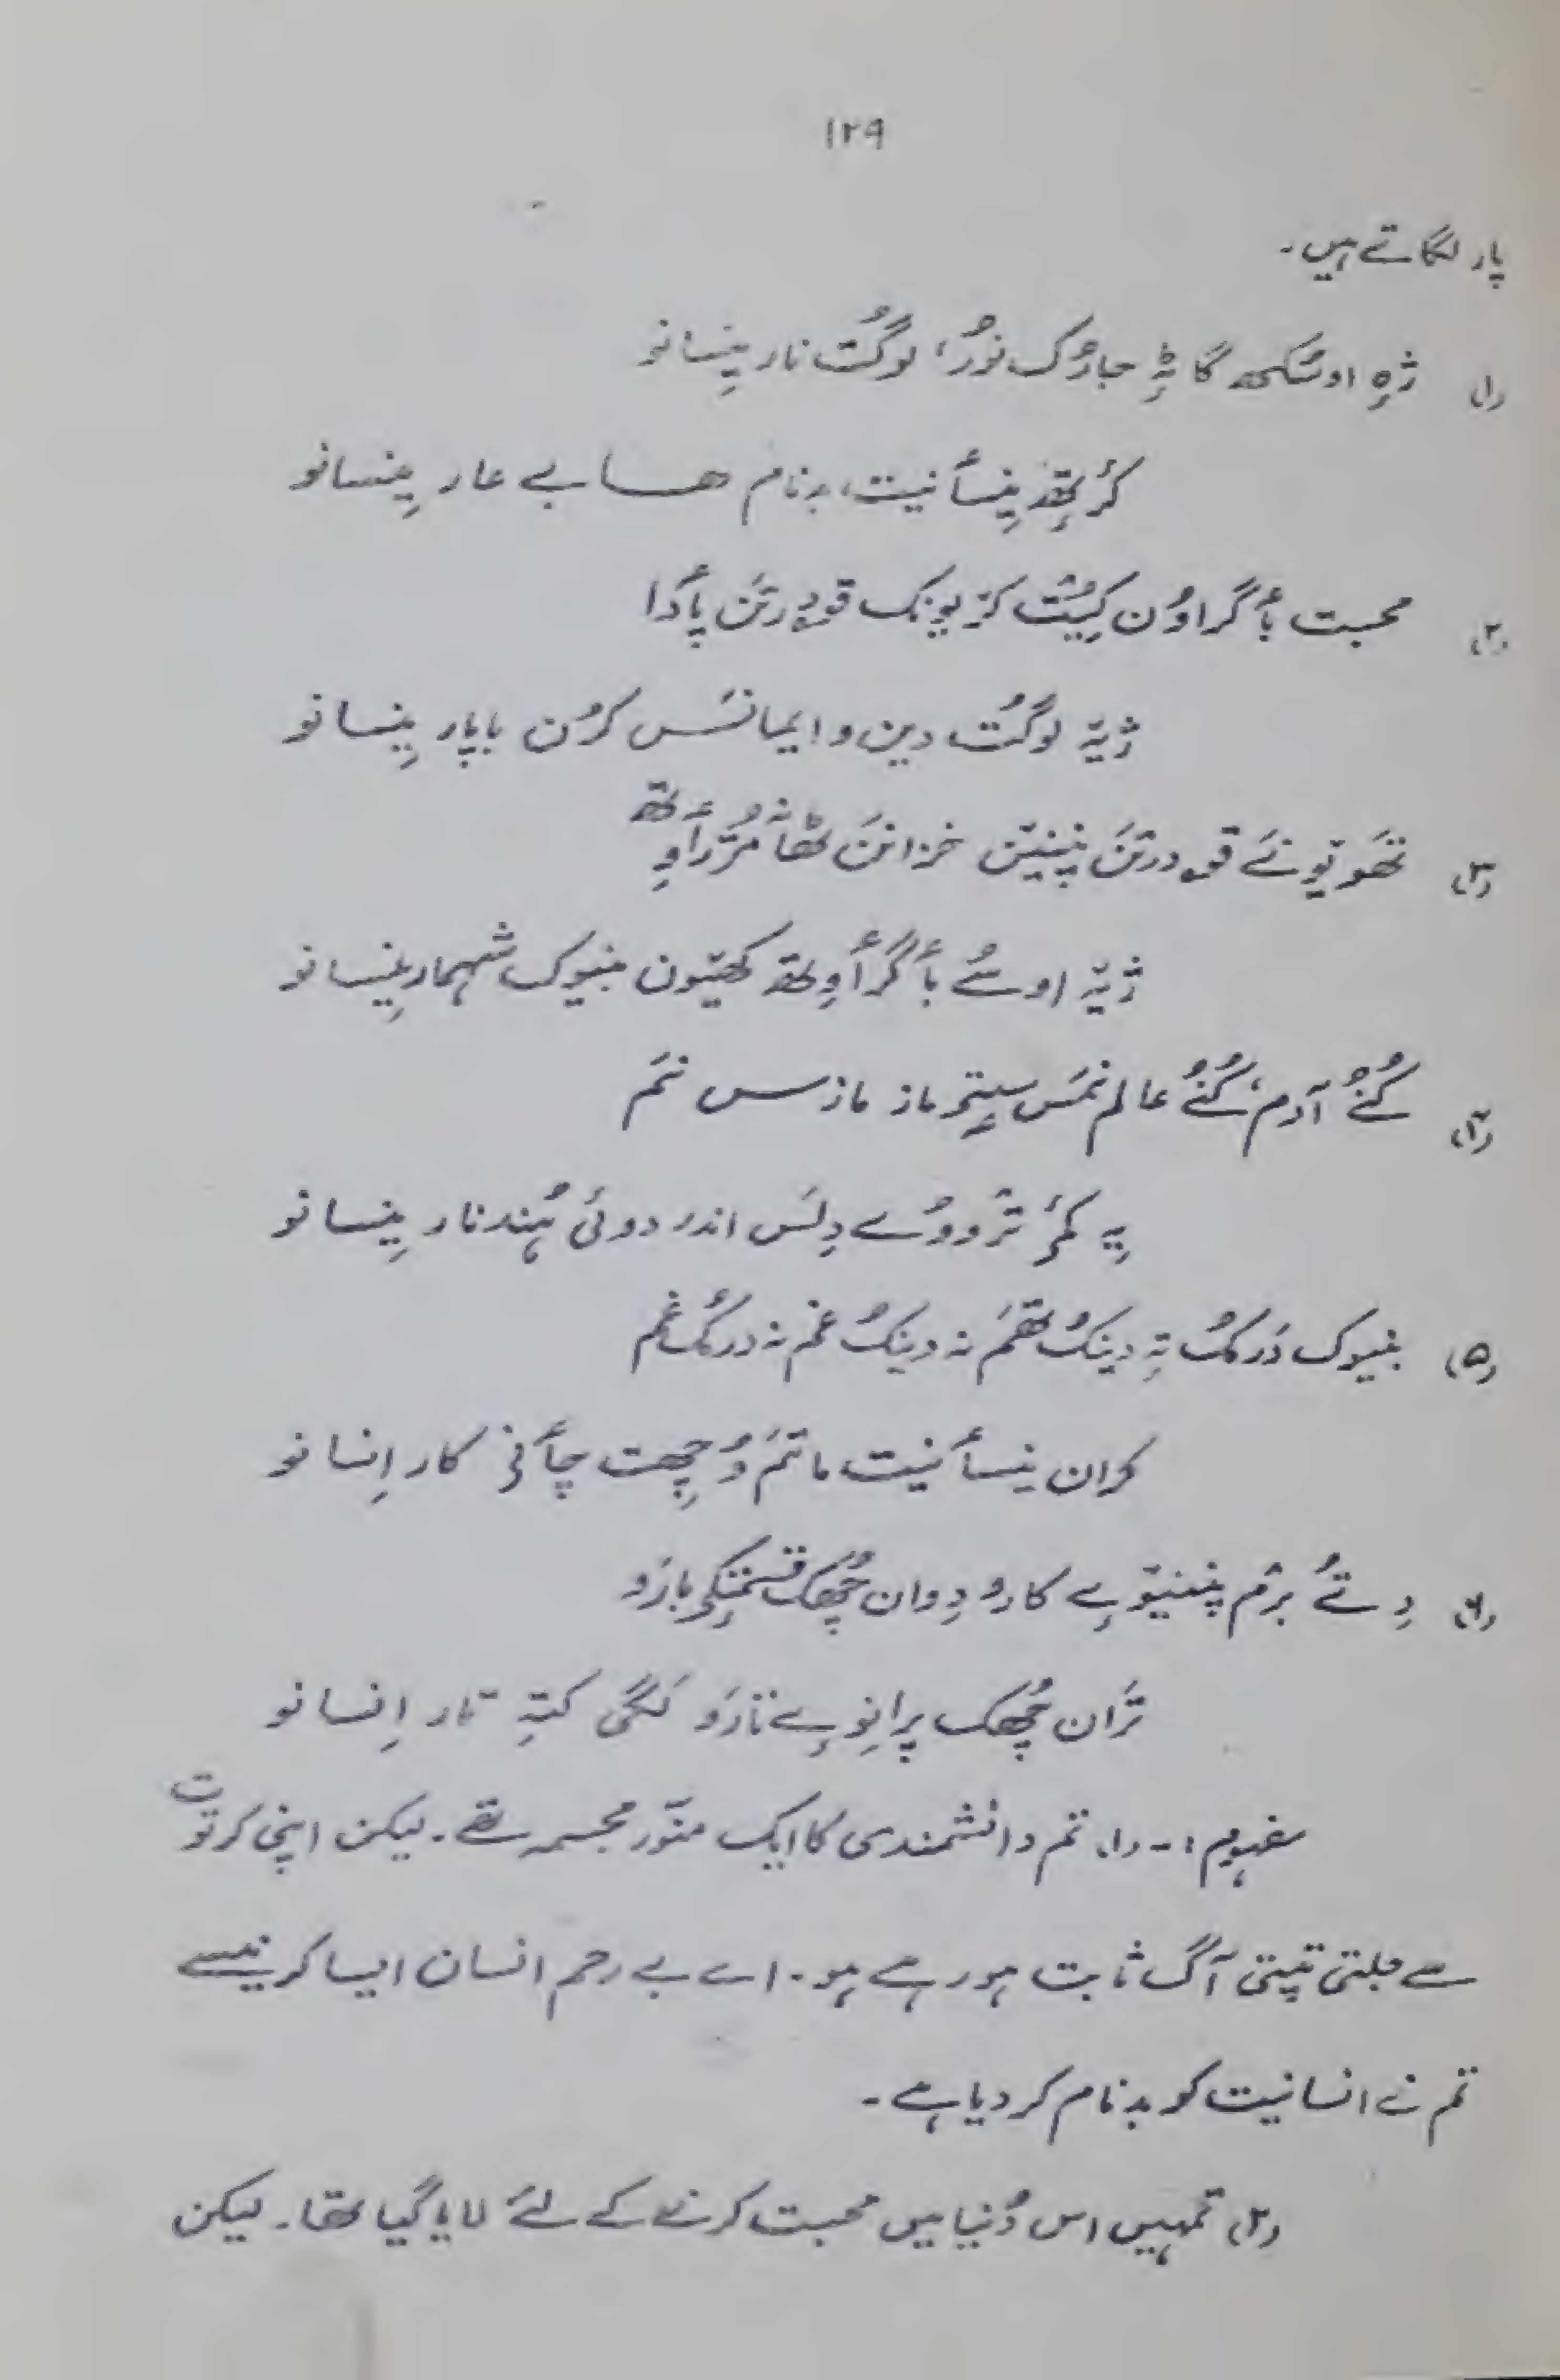 ۱۲۹
پار لگاتے ہیں۔
(۱) ژٕہ اوسُکھ گاٹہٕ جارُک نوٗر، لوگُت نار یِنسانو
کٔرِتھ یِنسأنیت بدنام ھسا بے عار یِنسانو
(۲) محبت بأگراوُن کیُت کۆرنک قۄدرتن پأدا
ژیتہِ لوگُت دین و ایمانَس کرُن باپار یِنسانو
(۳) تھَو تونَے قۄدرتَن پننیَن خزانَن ٹھانہٕ مُژرأوِتھ
ژیتہِ اوسُے بأگرأوِتھ کھیون بنیوک شہمار یِنسانو
(۴) کُنُے آدم، کُنُے عالم نمَس سٟتۍ ماز مازس نَم
یہِ کمۍ ترووُے دِلَس اندر دوئی ہُند نار یِنسانو
(۵) بنیوک دَرمُک تہِ دینُک تھَم نہ دینُک غم نہ درمُک غم
کران یِنسأنیت ماتَم وُچھِت چأنۍ کار اِنسانو
(۶) دِتُے برٛم پننیوٕے کارو دِوان چھُک قسمتٕکۍ بازَو
ترٛان چھُک پرانِوٕے نازَو لَگی کتہِ تار اِنسانو
مفہوم:۔ (۱) تم دانشمندی کا ایک منوّر مجسمہ تھے۔ لیکن اپنی کرتوت
سے جلتی تپتی آگ ثابت ہو رہے ہو۔ اے بے رحم انسان ایسا کرنیسے
تم نے انسانیت کو بدنام کر دیا ہے۔
(۲) تمہیں اس دُنیا میں محبت کرنے کے لئے لایا گیا تھا۔ لیکن